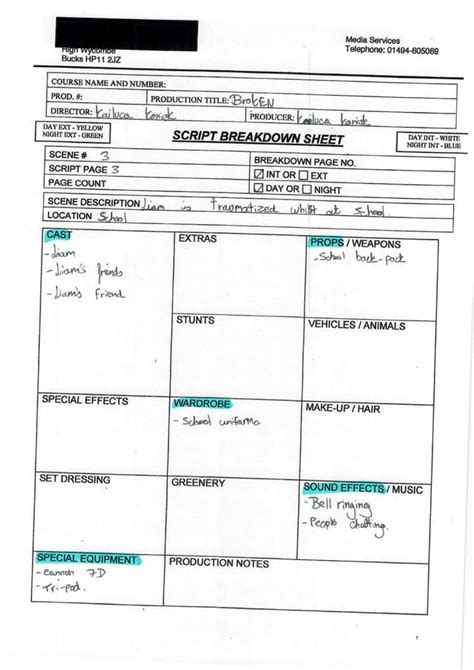 High Wycombe
Bucks HP11 2JZ
Media Services
Telephone: 01494-605069
COURSE NAME AND NUMBER:
PROD. #:
PRODUCTION TITLE: BroKEN
DIRECTOR: Kailuca
PRODUCER: Kailuca
DAY EXT - YELLOW
NIGHT EXT - GREEN
SCRIPT BREAKDOWN SHEET
DAY INT - WHITE
NIGHT INT - BLUE
SCENE # 3
BREAKDOWN PAGE NO.
SCRIPT PAGE 3
☑ INT OR ☐ EXT
PAGE COUNT
☑ DAY OR ☐ NIGHT
SCENE DESCRIPTION Liam is Traumatized whilst at School
LOCATION School
CAST
- Liam
- Liam's friends
- Liam's friend
EXTRAS
PROPS / WEAPONS
- School back-pack
STUNTS
VEHICLES / ANIMALS
SPECIAL EFFECTS
WARDROBE
- School uniforms
MAKE-UP / HAIR
SET DRESSING
GREENERY
SOUND EFFECTS / MUSIC
- Bell ringing
- People chatting.
SPECIAL EQUIPMENT
- cannon 7D
- Tri-pod.
PRODUCTION NOTES